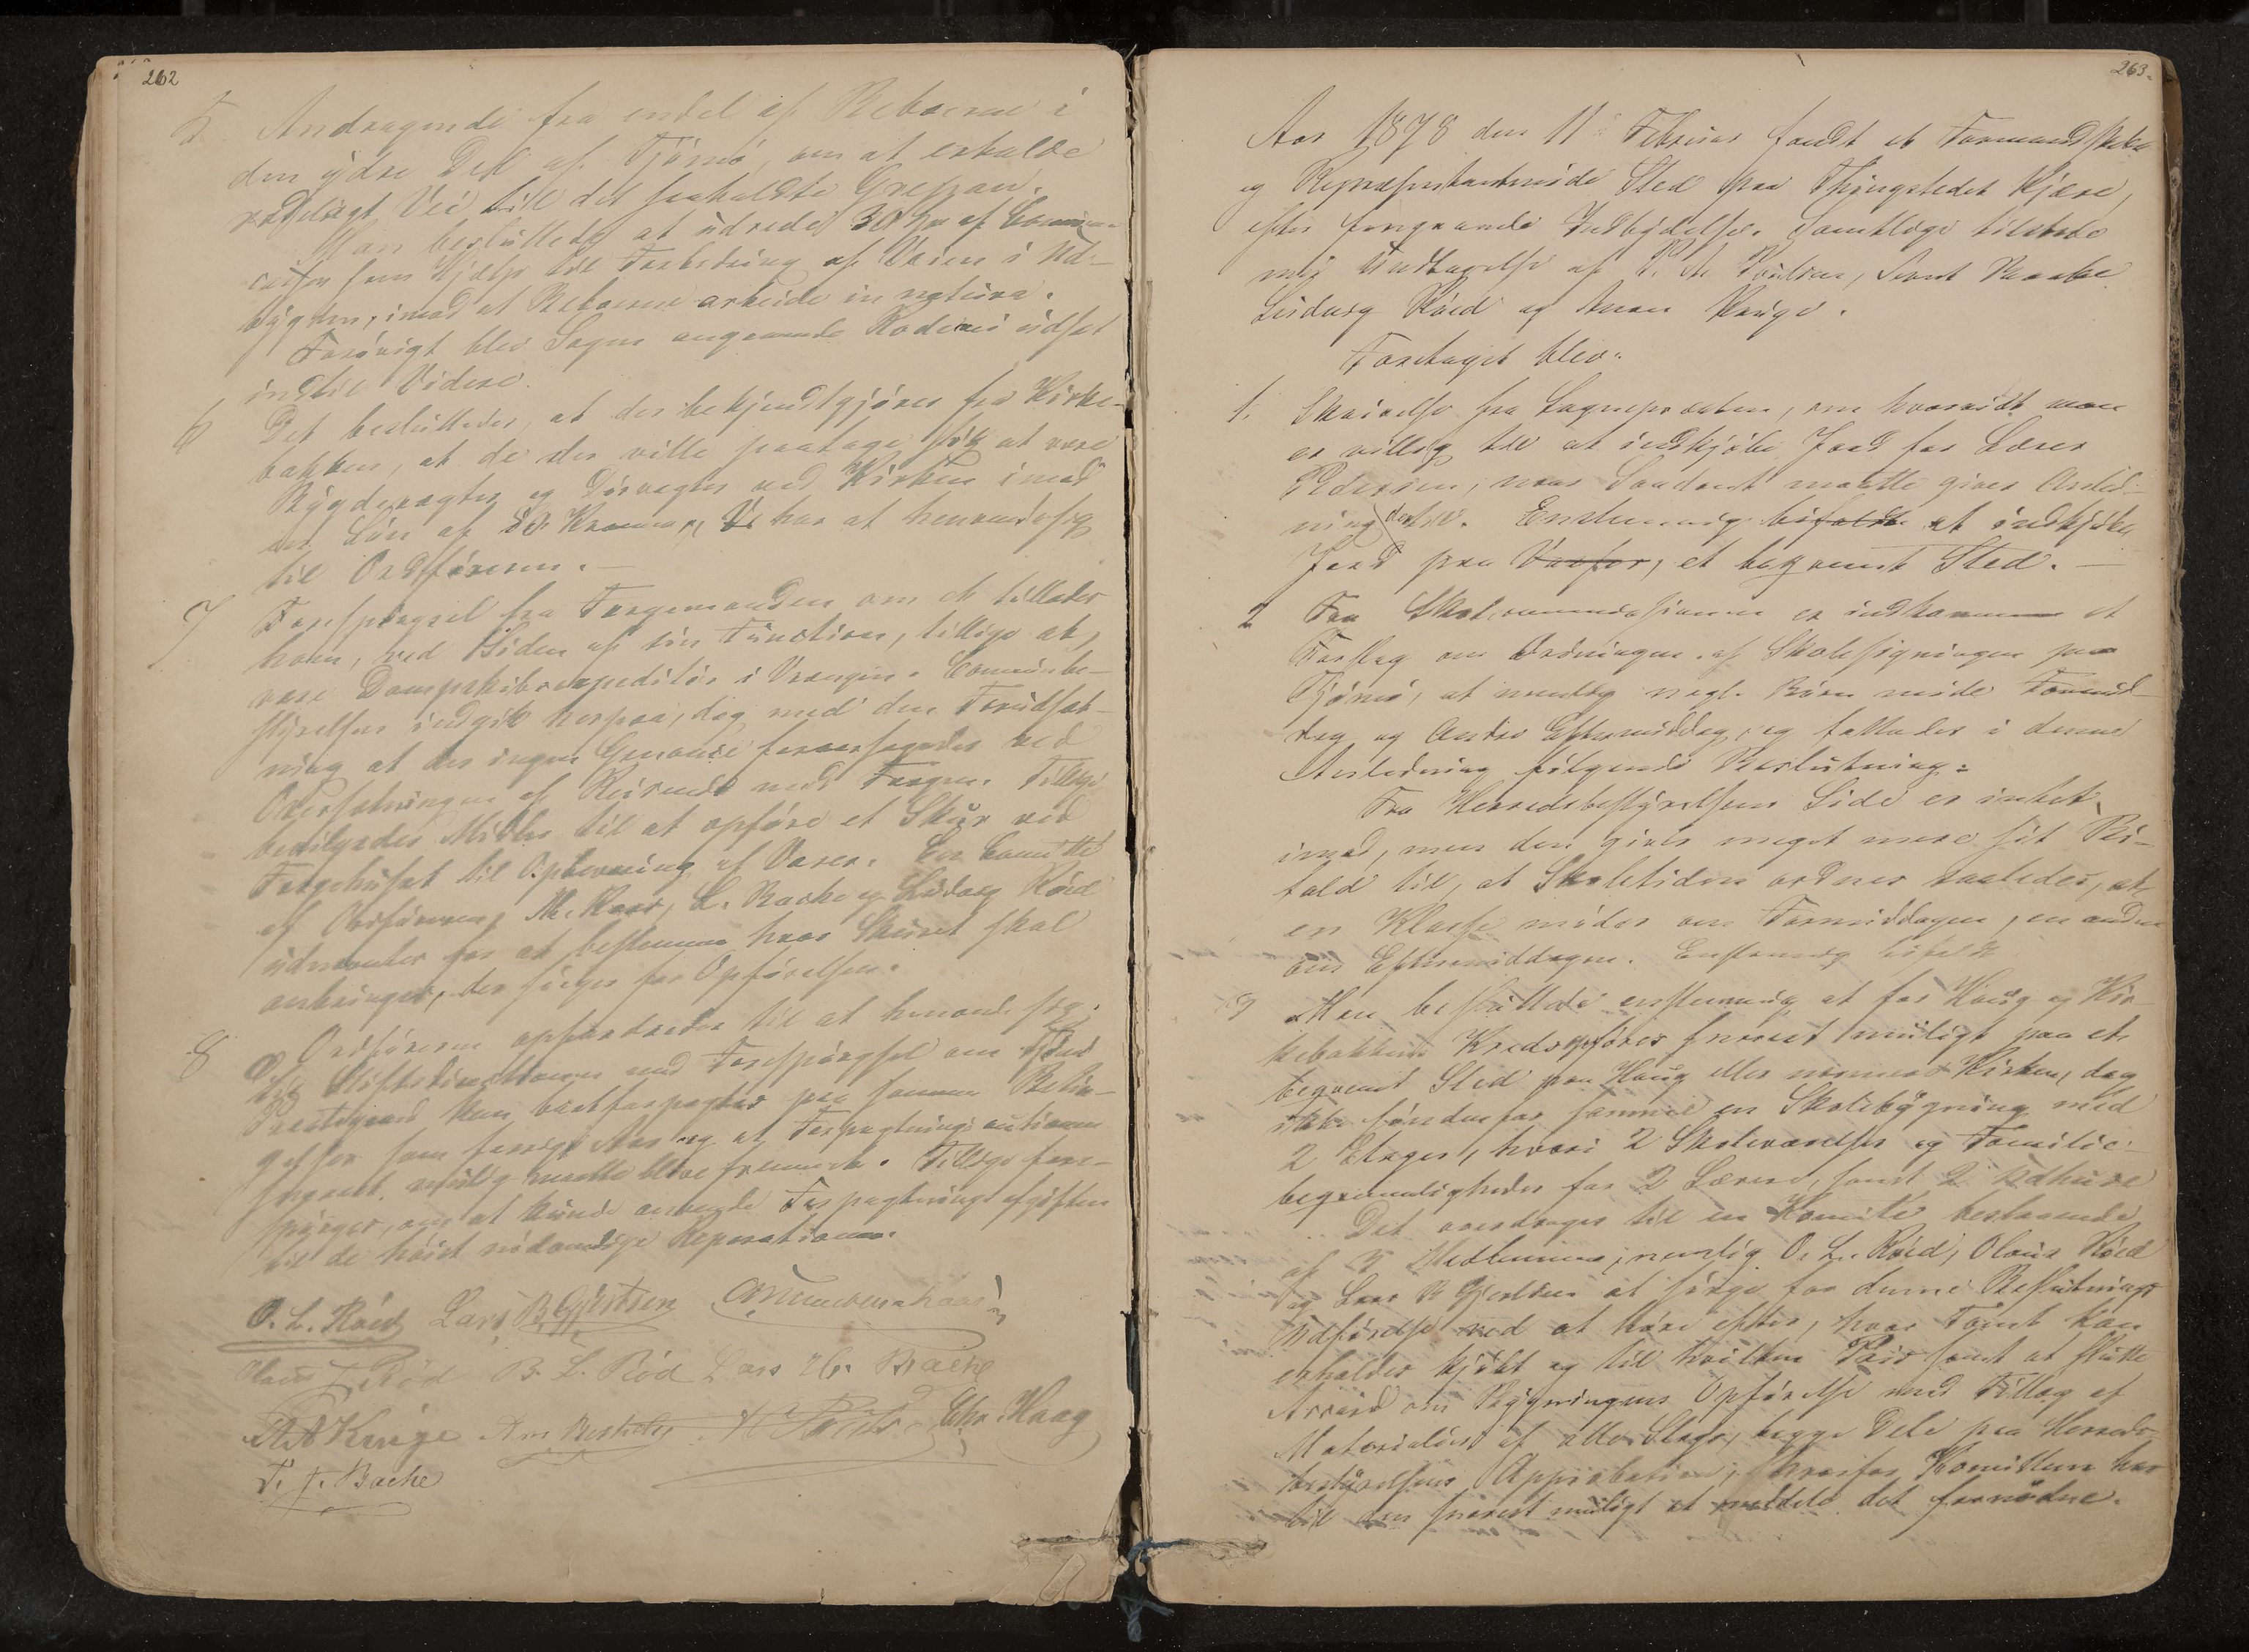 262
5 Andragende fra endel af Beboerne i
den ydre Del af Tjømø, om at erholde
rodelagt Vei til det saakaldte Grepan.
Man besluttede at udrede 30 Kr af Commune-
cassen som Hjælp til Forbedring af Veien i Ud-
bygden, imod at Beboerne arbeide in natura.
Forøvrigt blev Sagen angaaende Rodevei udsat
indtil Videre.
6 Det besluttedes, at der bekjendtgjøres fra Kirke-
bakken, at de der ville paatage sig at være
Bygdevægter og Dørvogter ved Kirken imod
en Løn af 80 Kroner, har at henvende sig
til Ordføreren. —
7 Forespørgsel fra Færgemanden om det tillades
ham, ved Siden af sin Function, tillige at
være Dampskibsexpeditør i Vrængen. Communebe-
styrelsen indgik herpaa, dog med den Forudsæt-
ning at der ingen Genance foraarsagedes ved
Oversætningen af Reisende med Færgen. Tillige
bevilgedes Midler til at opføre et Skur ved
Færgehuset til Opbevaring af Varer. En Comitté
af Ordføreren, M. Kaas, L. Backe og Ludvig Røed
udnævntes for at bestemme hvor Skuret skal
anbringes, der sørger for Opførelsen.
8 Ordføreren opfordredes til at henvende sig
til Stiftsdirectionen med Forespørgsel om Tjømø
Præstegaard kan bortforpagtes paa samme Betin-
gelser som forrige Aar og at Forpagtningsauctionen
snarest mulig maatte blive fremmet. Tillige fore-
spørges, om at kunde anvende Forpagtningsafgiften
til de høist nødvendige Reparationer.
O. L. Røed Lars B. Gjertsen
Olaus F. Rød B. L. Rød Lars Chr. Backe
A Kruge Chr. Haag
F. F. Backe
263.
Aar 1878 den 11 Februar fandt et Formandskabs
og Repræsentantmøde Sted paa Thingstedet Kjære,
efter foregaaende Indbydelse. Samtlige tilstede
med Undtagelse af Poulsen, samt Backe
Ludvig Røed og Kruge.
Foretaget blev:
1. Skrivelse fra Sognepræsten, om hvorvidt man
er villig til at indkjøbe Jord for Lærer
Pedersen, naar Saadant maatte gives Anled-
ning dertil. Enstemmig bifaldt at indkjøbe
Jord paa et beqvemt Sted. —
2 Fra Skolecommissionen er indkommen et
Forslag om Ordningen af Skolesøgningen paa
Tjømø, at nemlig nogle Børn møde Formid-
dag og Andre Eftermiddag, og fattedes i denne
Anledning følgende Beslutning:
Fra Herredsbestyrelsens Side er intet
imod, men den giver meget mere sit Bi-
fald til, at Skoletiden ordnes saaledes, at
en Klasse møder om Formiddagen, en anden
om Eftermiddagen. Enstemmig bifaldt
3 Man besluttede enstemmig at for Haug og Kir-
kebakkens Kreds opføres snarest muligt paa et
beqvemt Sted paa Haug eller nærmere Kirken, dog
ikke søndenfor samme en Skolebygning med
2 Etager, hvori 2 Skoleværelser og Familie-
beqvemmeligheder for 2 Lærere, samt 2 Udhuse
Det overdrages til en Komite bestaaende
af 3 Medlemmer, nemlig O. L. Røed, Olaus Røed
og Lars B Gjertsen at sørge for denne Beslutnings
Udførelse ved at høre efter, hvor Tomt kan
erholdes kjøbt og til hvilken Pris samt at slutte
Accord om Bygningens Opførelse med Tillæg af
Materialier af alle Slags, begge Dele paa Herreds-
bestyrelsens Approbation, hvorfor Komitteen har
til den snarest muligt at meddele det fornødne.